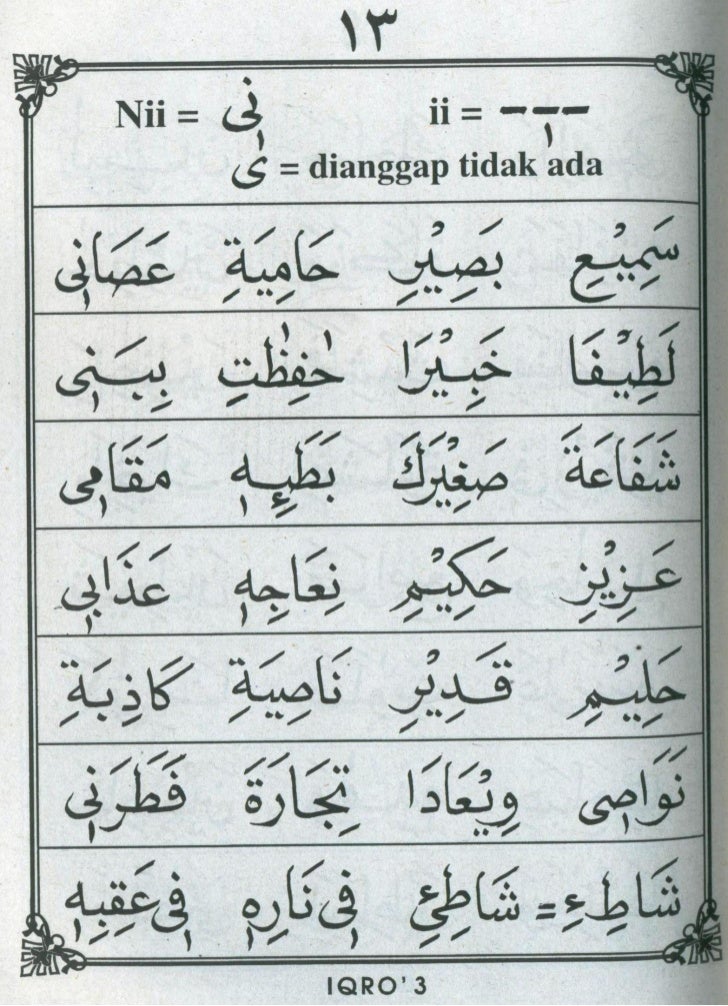 ١٣
Nii = نٖى ii = ---ٖ
ى = dianggap tidak ada
سَمِيْعِ بَصِيْرِ حَامِيَةِ عَصَانٖى
لَطِيْفَا خَبِيْرَا حٰفِظٰتِ بِبَنٖى
شَفَاعَةَ صَغِيْرَكَ بَطَيِٕهٖ مَقَامٖى
عَزِيْزِ حَكِيْمِ نِعَاجِهٖ عَذَابٖى
حَلِيْمِ قَدِيْرِ نَاصِيَةِ كَاذِبَةِ
نَوَاصٖى وِيْعَادَا تِجَارَةَ فَطَرَنٖى
شَاطِءِ = شَاطِئِ فٖى نَارِهٖ فٖى عَقِبِهٖ
IQRO' 3